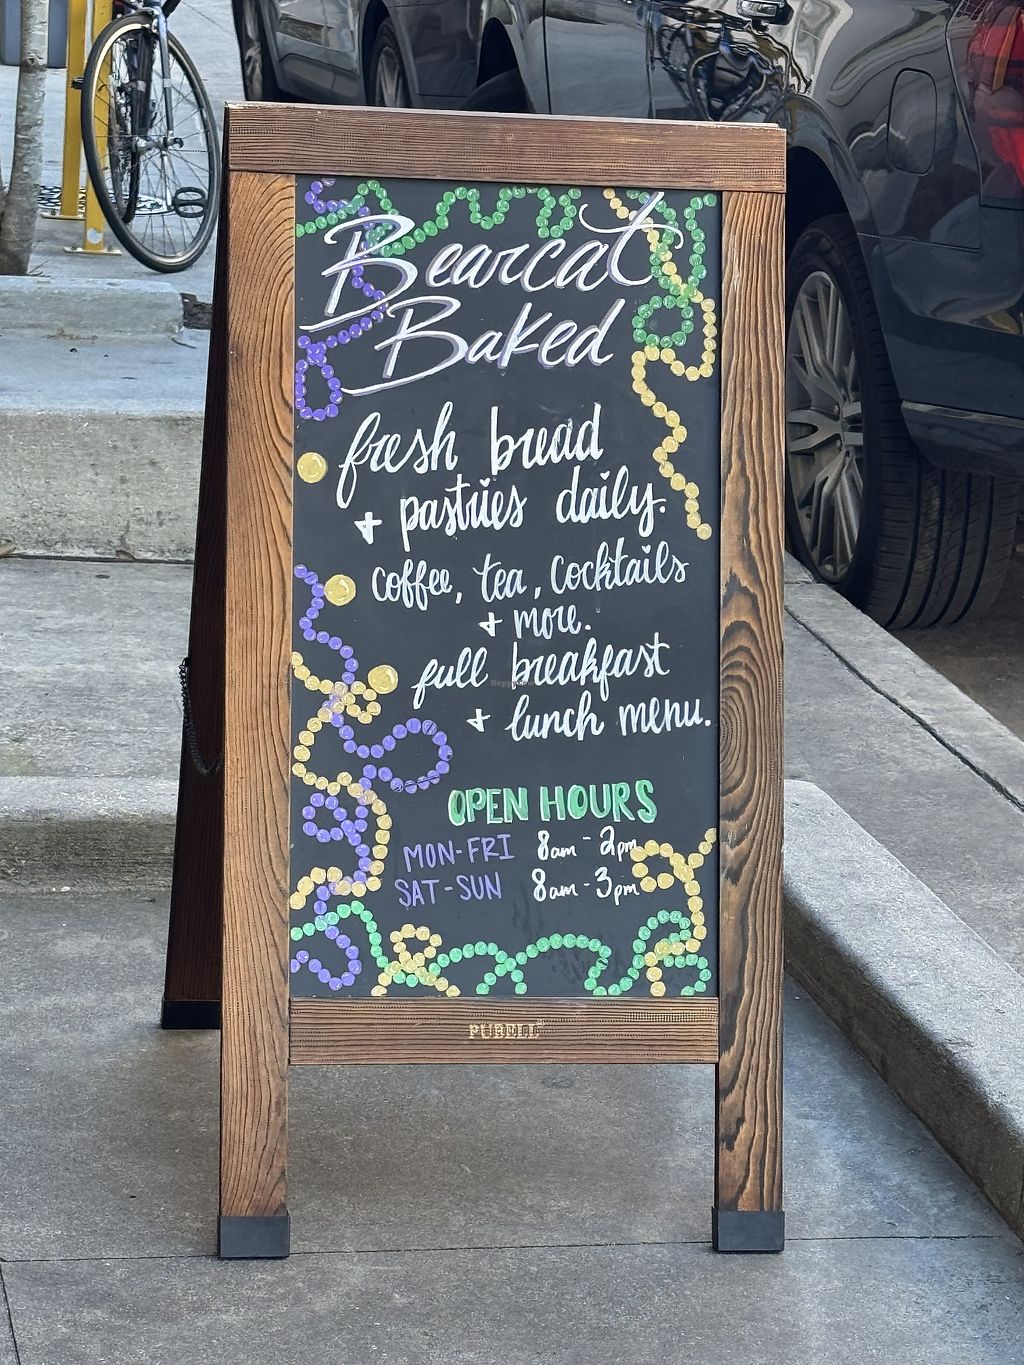 Bearcat
Baked
fresh bread
+ pastries daily.
coffee, tea, Cocktails
+ more.
full breakfast
+ lunch menu.
OPEN HOURS
MON-FRI 8am - 2pm
SAT-SUN 8am - 3pm